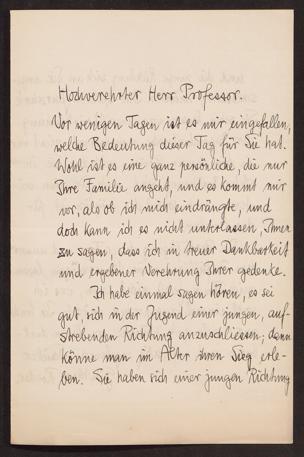 Hochverehrter Herr Professor.
Vor wenigen Tagen ist es mir eingefallen,
welche Bedeutung dieser Tag für Sie hat.
Wohl ist es eine ganz persönliche, die nur
Ihre Familie angeht, und es kommt mir
vor, als ob ich mich eindrängte, und
doch kann ich es nicht unterlassen, Ihnen
zu sagen, dass ich in treuer Dankbarkeit
und ergebener Verehrung Ihrer gedenke.
Ich habe einmal sagen hören, es sei
gut, sich in der Jugend einer jungen, auf-
strebenden Richtung anzuschliessen; dann
könne man im Alter ihren Sieg erle-
ben. Sie haben sich einer jungen Richtung